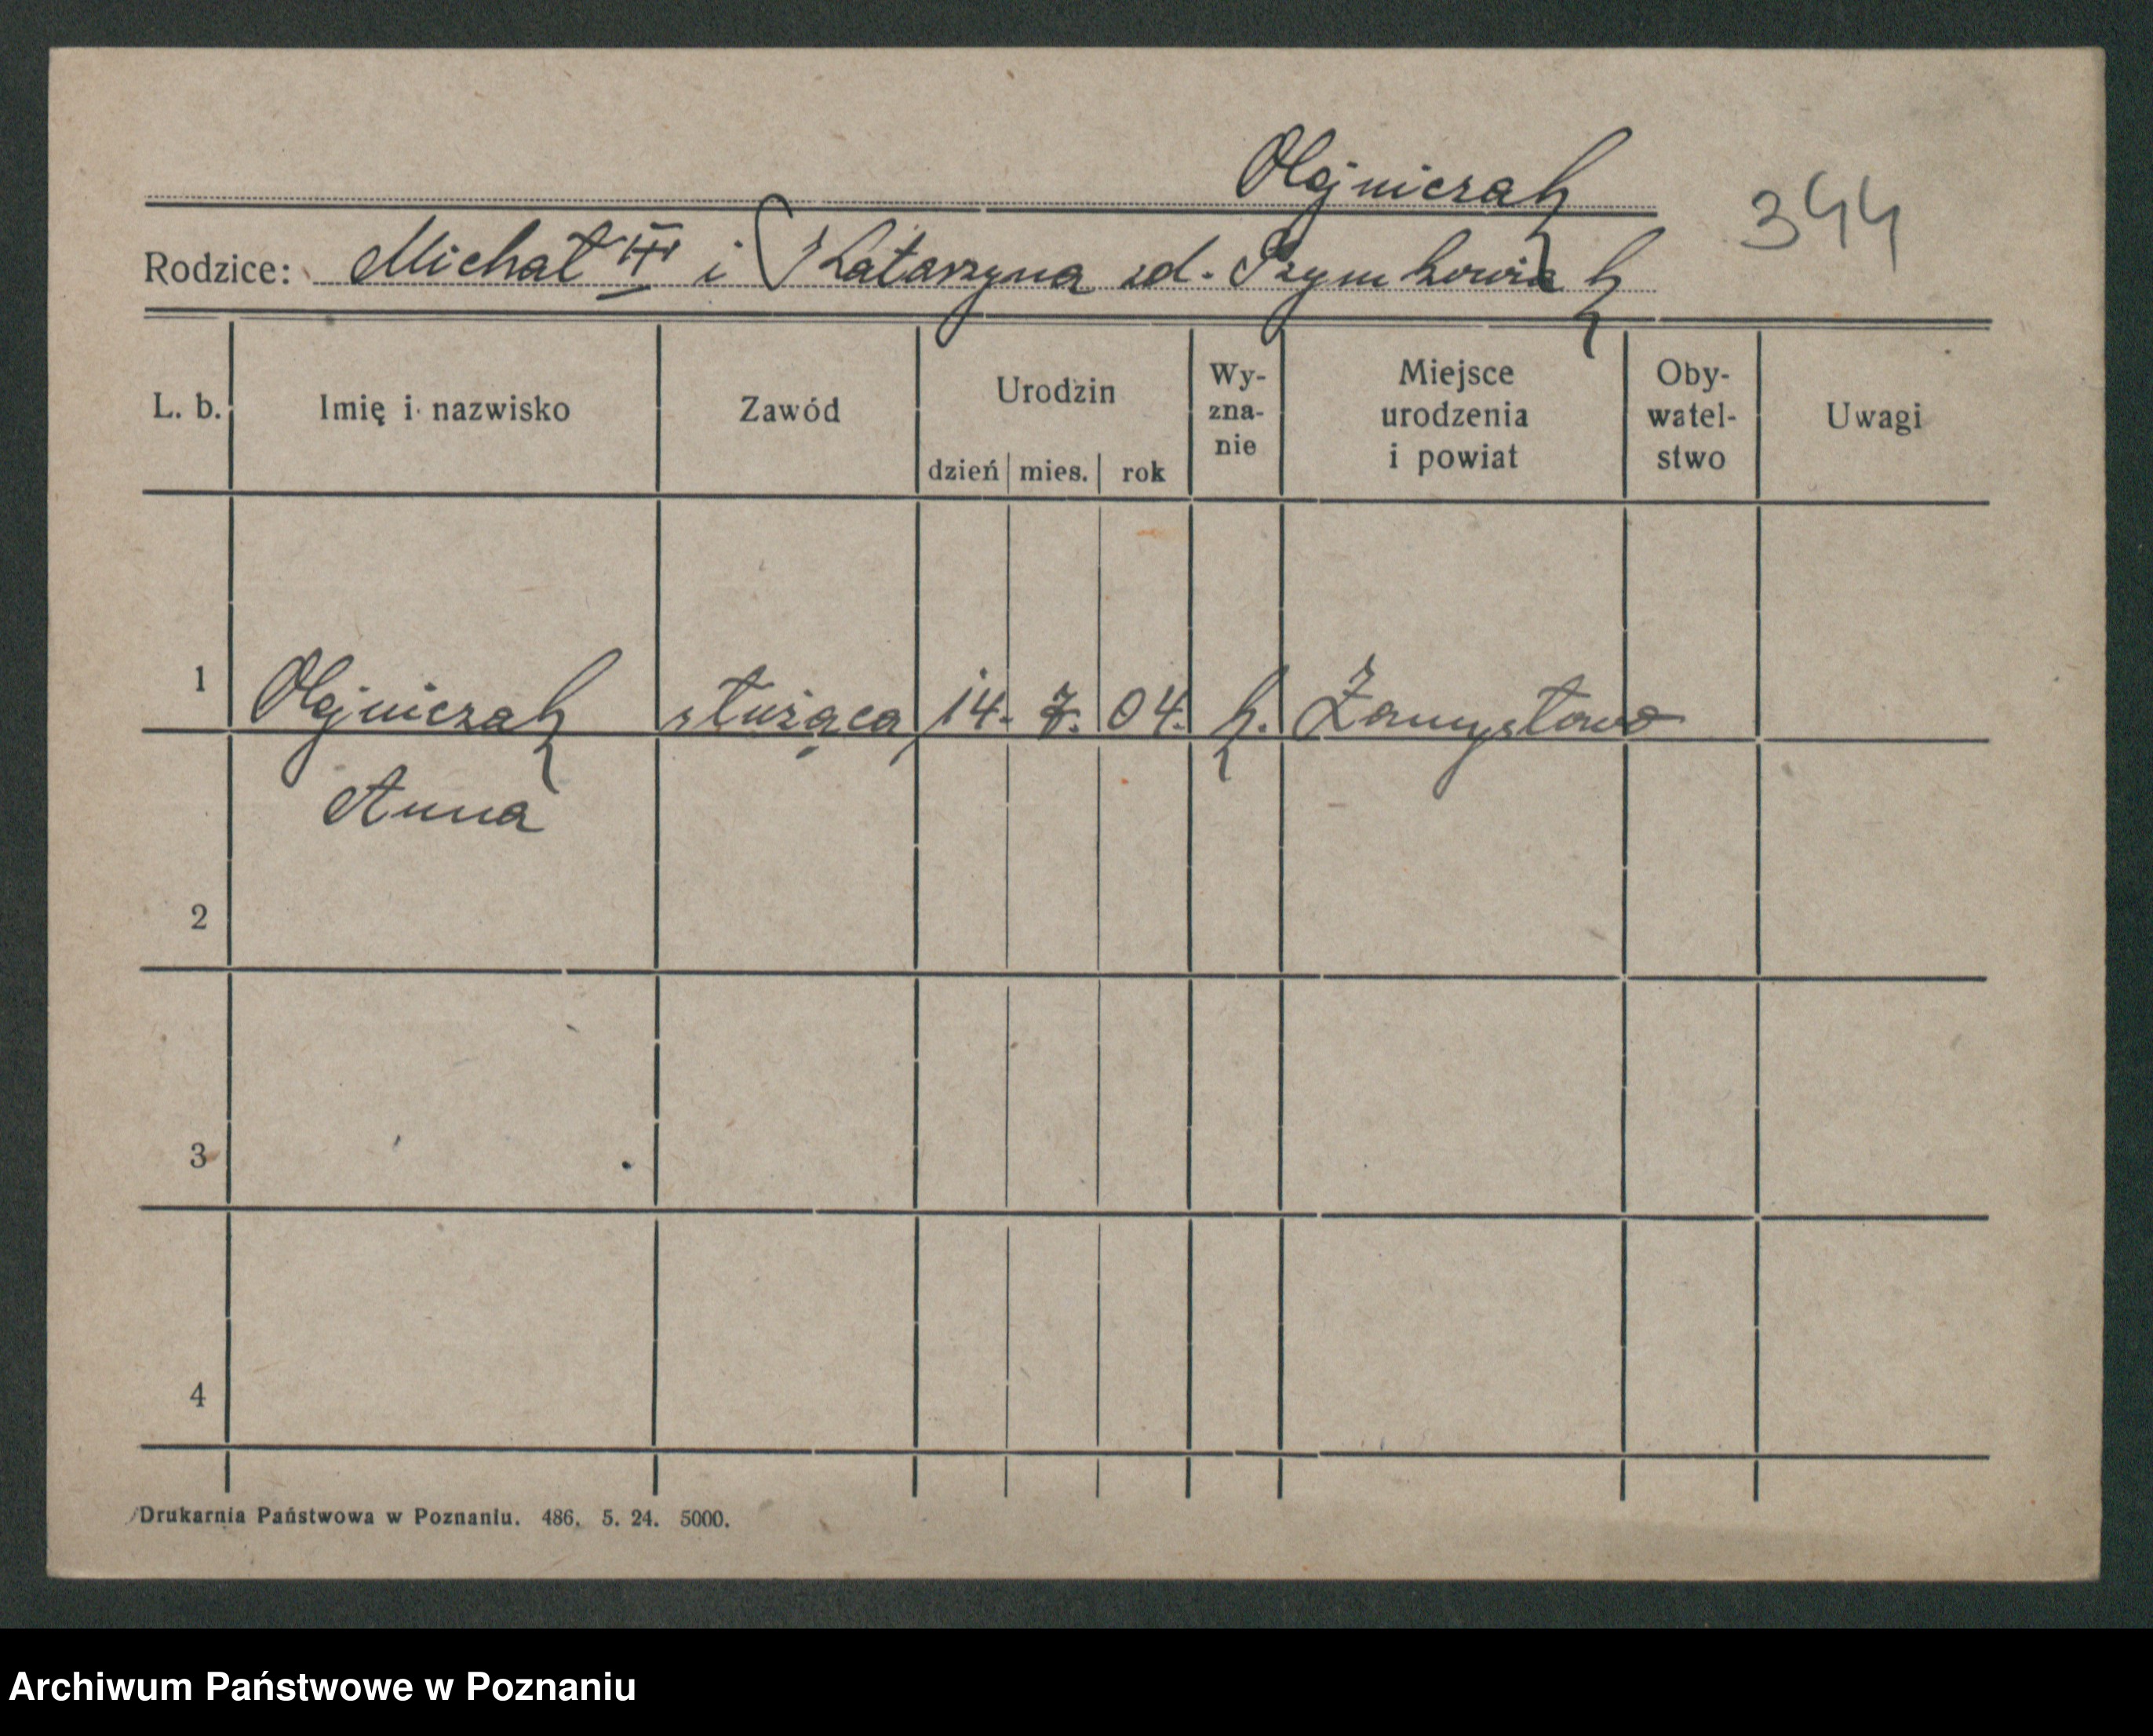 Olejniczak
344
Rodzice: Michał III i Katarzyna zd. Szymkowiak
L. b. Imię i nazwisko Zawód Urodzin dzień mies. rok Wy-zna-nie Miejsce urodzenia i powiat Oby-watel-stwo Uwagi
1 Olejniczak służąca 14. 7. 04. k. Zamysłowo
Anna
2
3
4
Drukarnia Państwowa w Poznaniu. 486. 5. 24. 5000.
Archiwum Państwowe w Poznaniu